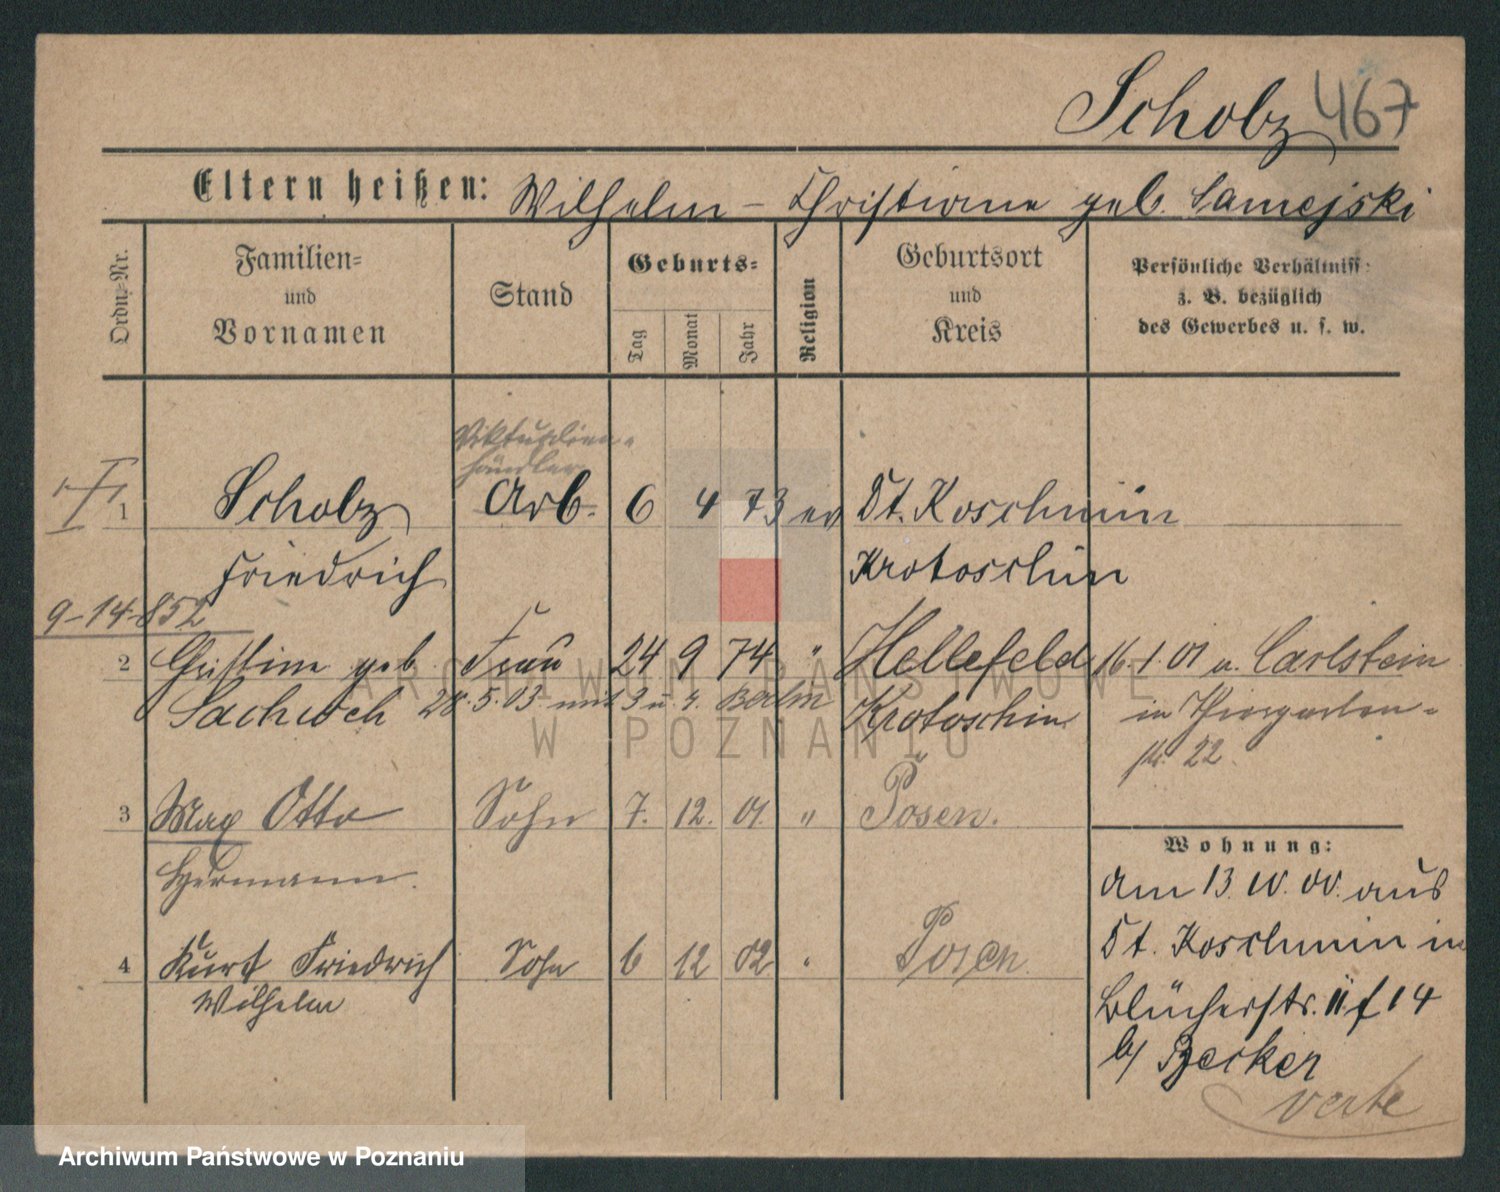 Scholz 467
Eltern heißen: Wilhelm – Christiane geb. Samejski
Ordn.-Nr.
Familien-
und
Vornamen
Stand
Geburts-
Tag
Monat
Jahr
Religion
Geburtsort
und
Kreis
Persönliche Verhältniss
z. B. bezüglich
des Gewerbes u. s. w.
Viktualien-
händler
1 Scholz Arb. 6 4 73 ev Dt. Koschmin
Friedrich Krotoschin
9-14-852
2 Christine geb. Frau 24 9 74 " Hellefeld 16.1.01 u. Carlstein
28.5.03 mit 3 u. 4. Berlin Krotoschin in Thiergarten-
str. 22.
3 Max Otto Sohn 7. 12. 01. " Posen.
Hermann.
4 Kurt Friedrich Sohn 6 12 02 " Posen
Wilhelm
Wohnung:
Am 13. IV. 00. aus
Dt. Koschmin in
Blücherstr. 11 f 14
b/ Becker
verte
ARCHIWUM PAŃSTWOWE
W POZNANIU
Archiwum Państwowe w Poznaniu